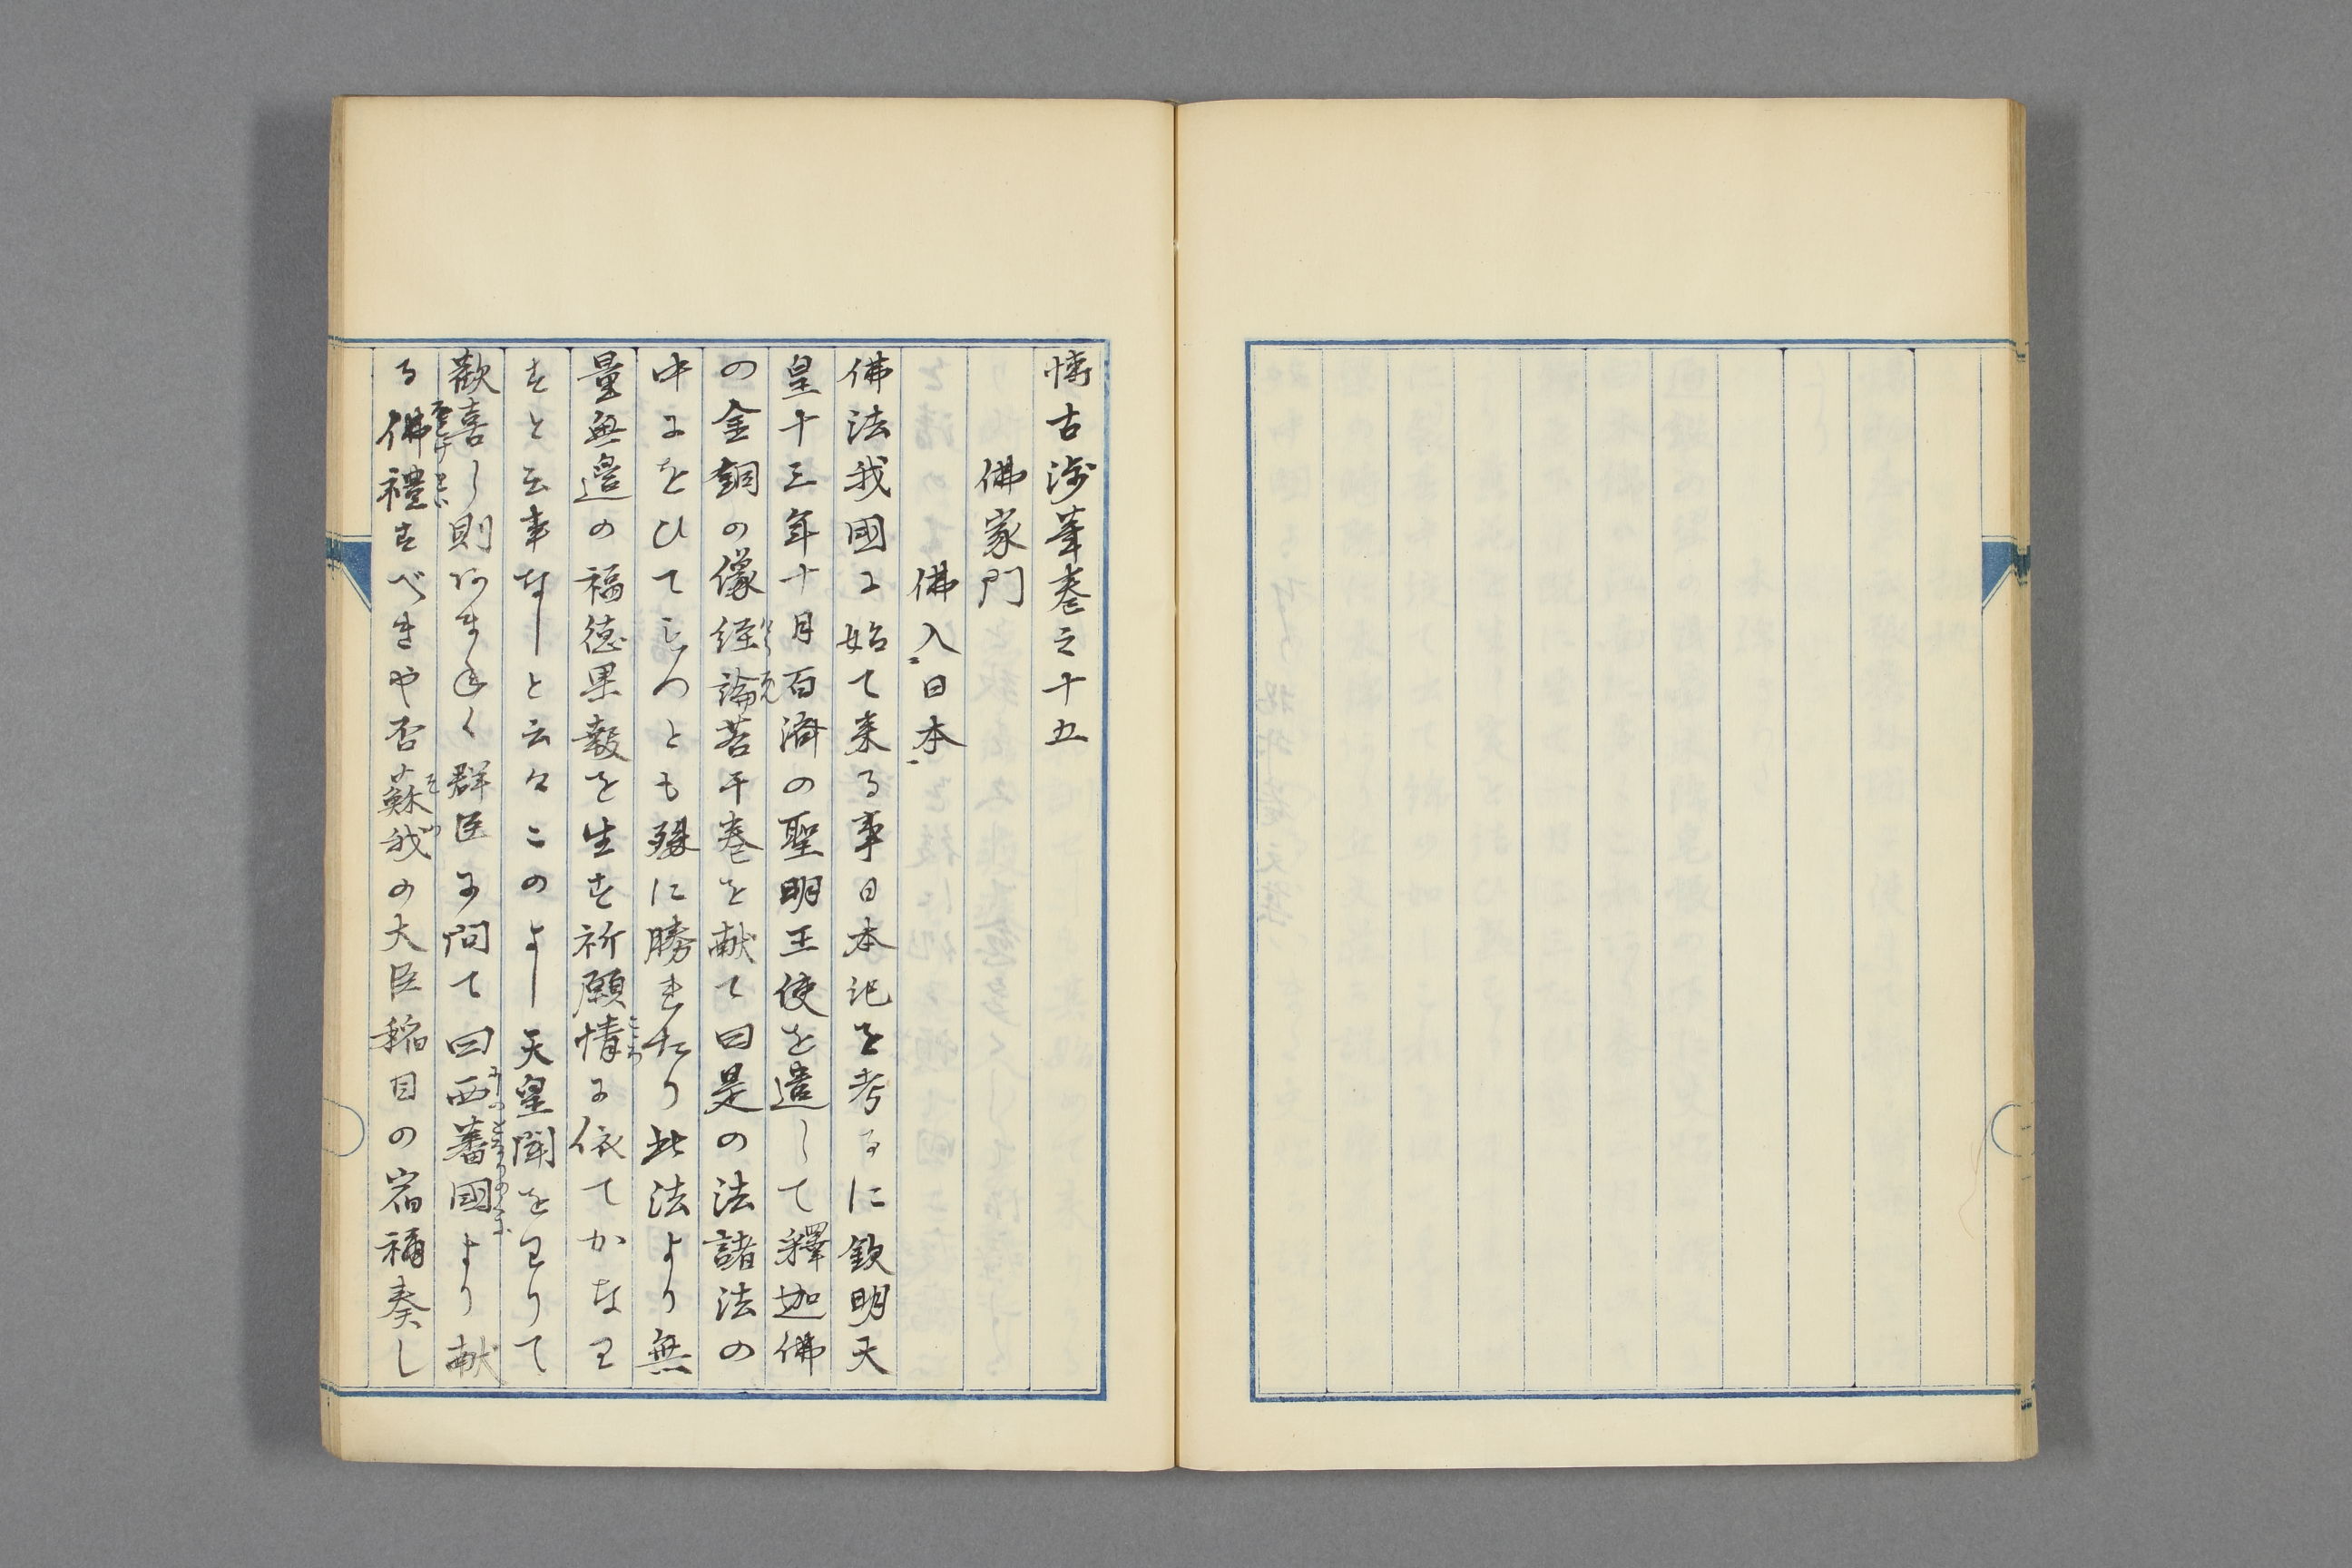 博古渉筆巻之十五
佛家門
佛入日本
佛法我國に始て来る事日本記を考るに欽明天
皇十三年十月百済の聖明王使を遣して釋迦佛
の金銅の像経論若干巻を献て曰是の法諸法の
中にをひてもつとも殊に勝れたり此法より無
量無邉の福徳果報を生す祈願情に依てかなわ
すと云事なしと云々このよし天皇聞をわりて
歓喜し則あまねく群臣に問て曰西蕃國より献
る佛禮すべきや否蘇我の大臣稲目の宿禰奏し